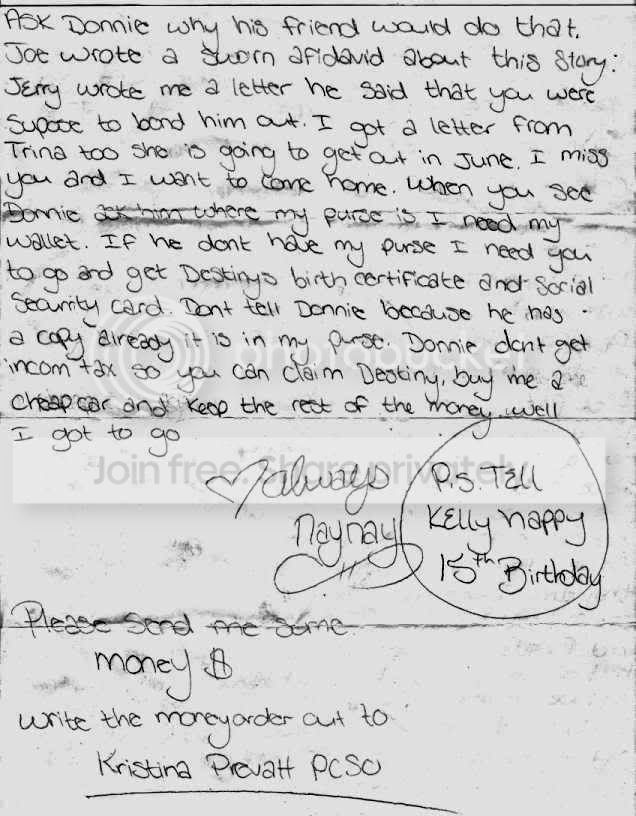 ASK Donnie why his friend would do that.
Joe wrote a Sworn afidavid about this Story:
Jerry wrote me a letter he said that you were
Supose to bond him out. I got a letter from
Trina too she is going to get out in June. I miss
you and I want to come home. When you see
Donnie ask him where my purse is I need my
wallet. If he dont have my purse I need you
to go and get Destinys birth certificate and Social
Security card. Dont tell Donnie because he has
a copy already it is in my purse. Donnie dont get
incom tax so you can claim Destiny, buy me a
cheap car and keep the rest of the money. well
I got to go
Join free. Share privately
always
Naynay
P.S. Tell
Kelly Happy
15th Birthday
Please Send me some
money $
write the moneyorder out to
Kristina Prevatt PCSO
photobucket